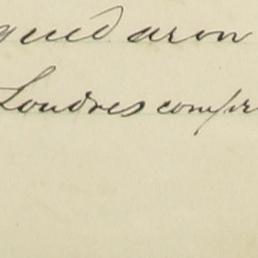 quedaron
Londres compr